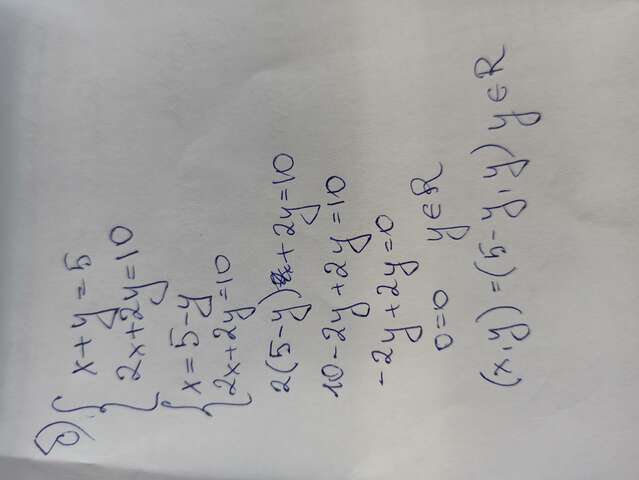 δ) { x+y=5
2x+2y=10
{ x=5-y
2x+2y=10
2(5-y)+2y=10
10-2y+2y=10
-2y+2y=0
0=0 y∈R
(x,y)=(5-y,y) y∈R